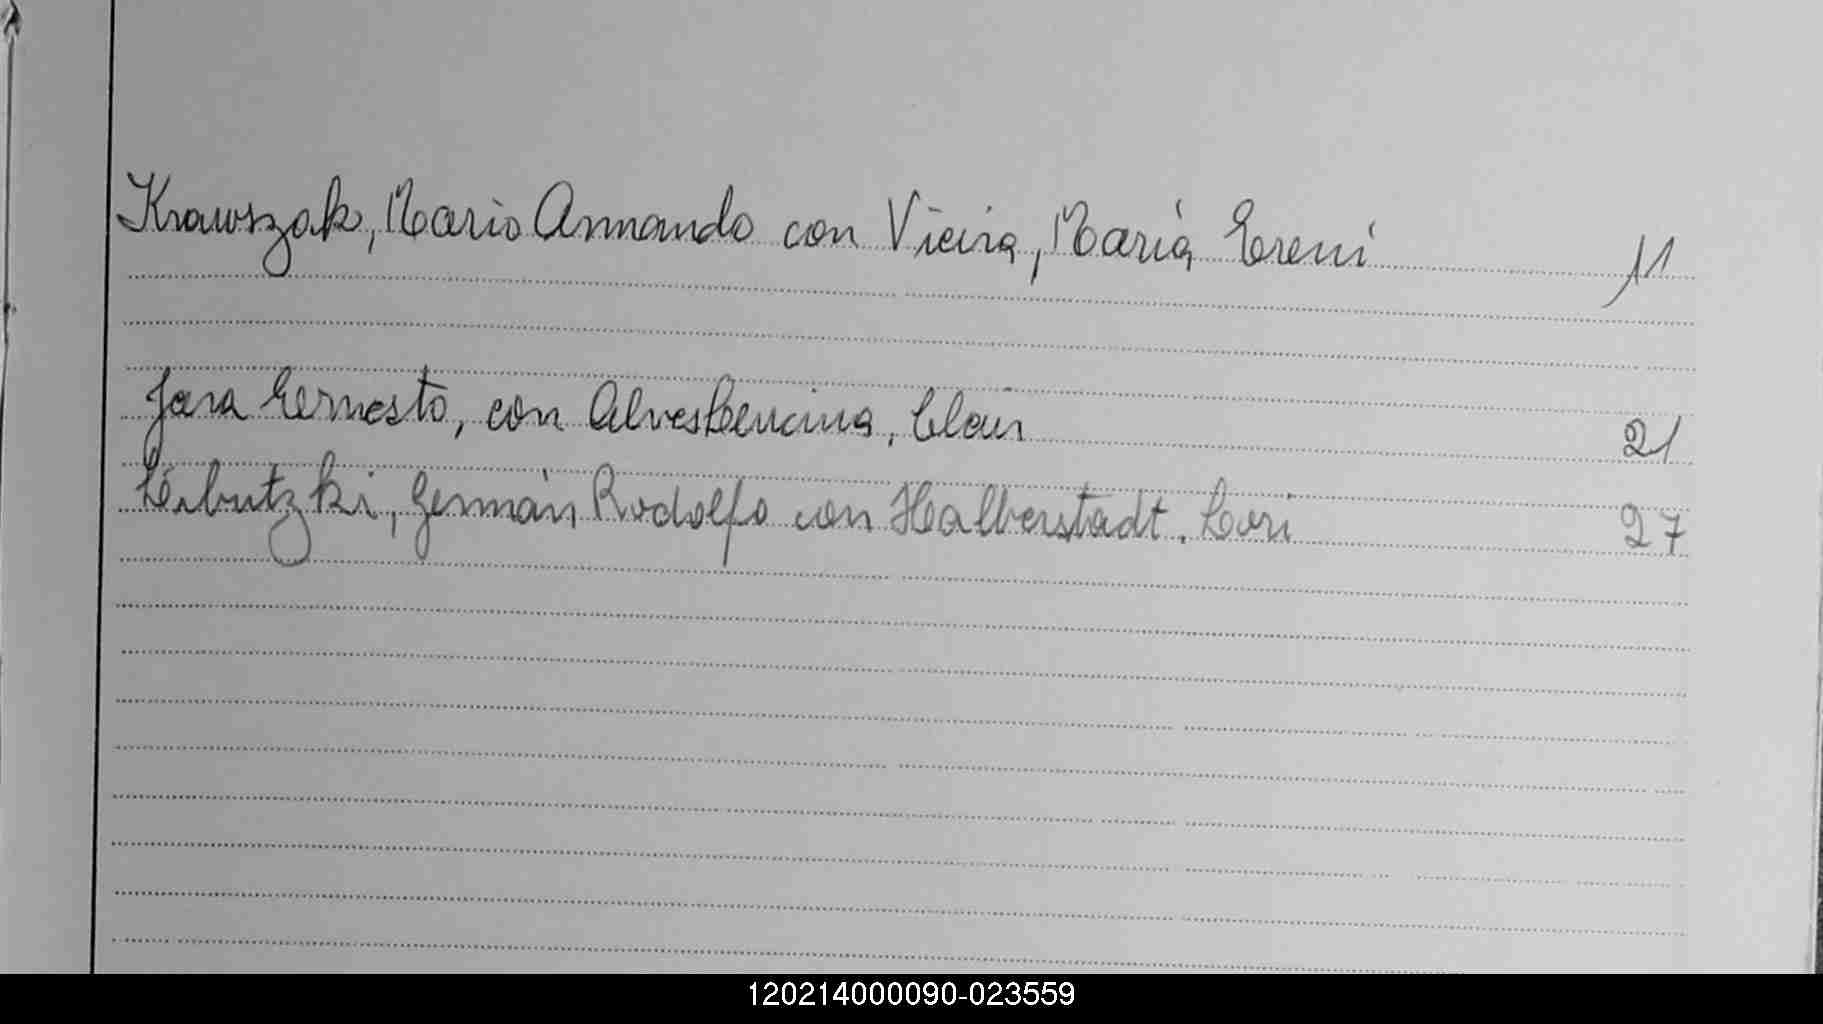 Krawszak, Mario Armando con Vieira, María Ereni 11
Jara Ernesto, con Alves Cencina, Clair 21
Leibutzki, Germán Rodolfo con Halberstadt. Lori 27
120214000090-023559